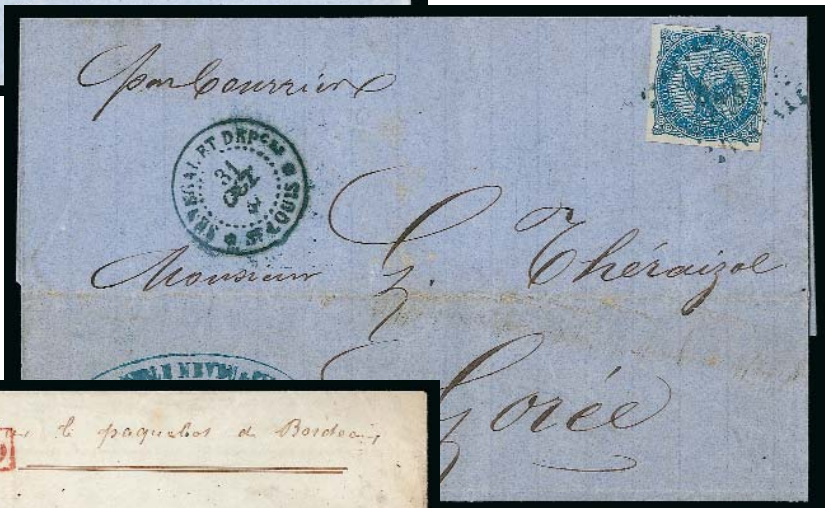 par Courrier
SENEGAL ET DEPces
31
OCT
ST LOUIS
Monsieur G. Théraizol
Gorée
NEVEU
le paquebot de Bordeaux